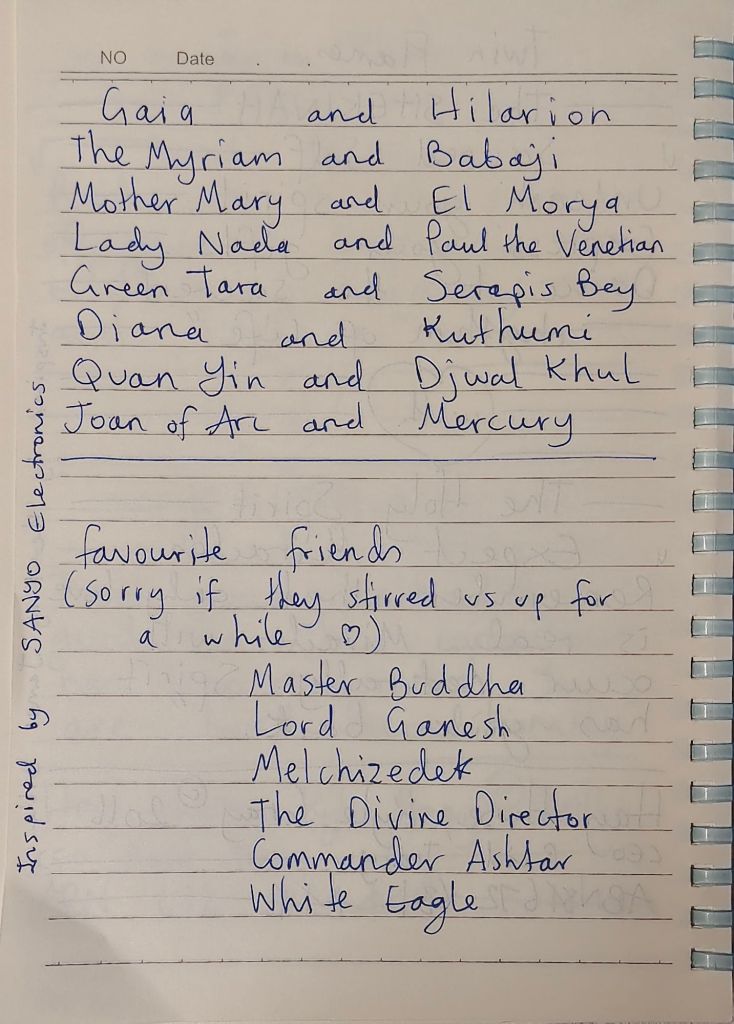 NO Date . .
Gaia and Hilarion
The Myriam and Babaji
Mother Mary and El Morya
Lady Nada and Paul the Venetian
Green Tara and Serapis Bey
Diana and Kuthumi
Quan Yin and Djwal Khul
Joan of Arc and Mercury
favourite friends
(sorry if they stirred us up for
a while ♡)
Master Buddha
Lord Ganesh
Melchizedek
The Divine Director
Commander Ashtar
White Eagle
Inspired by SANYO Electronics